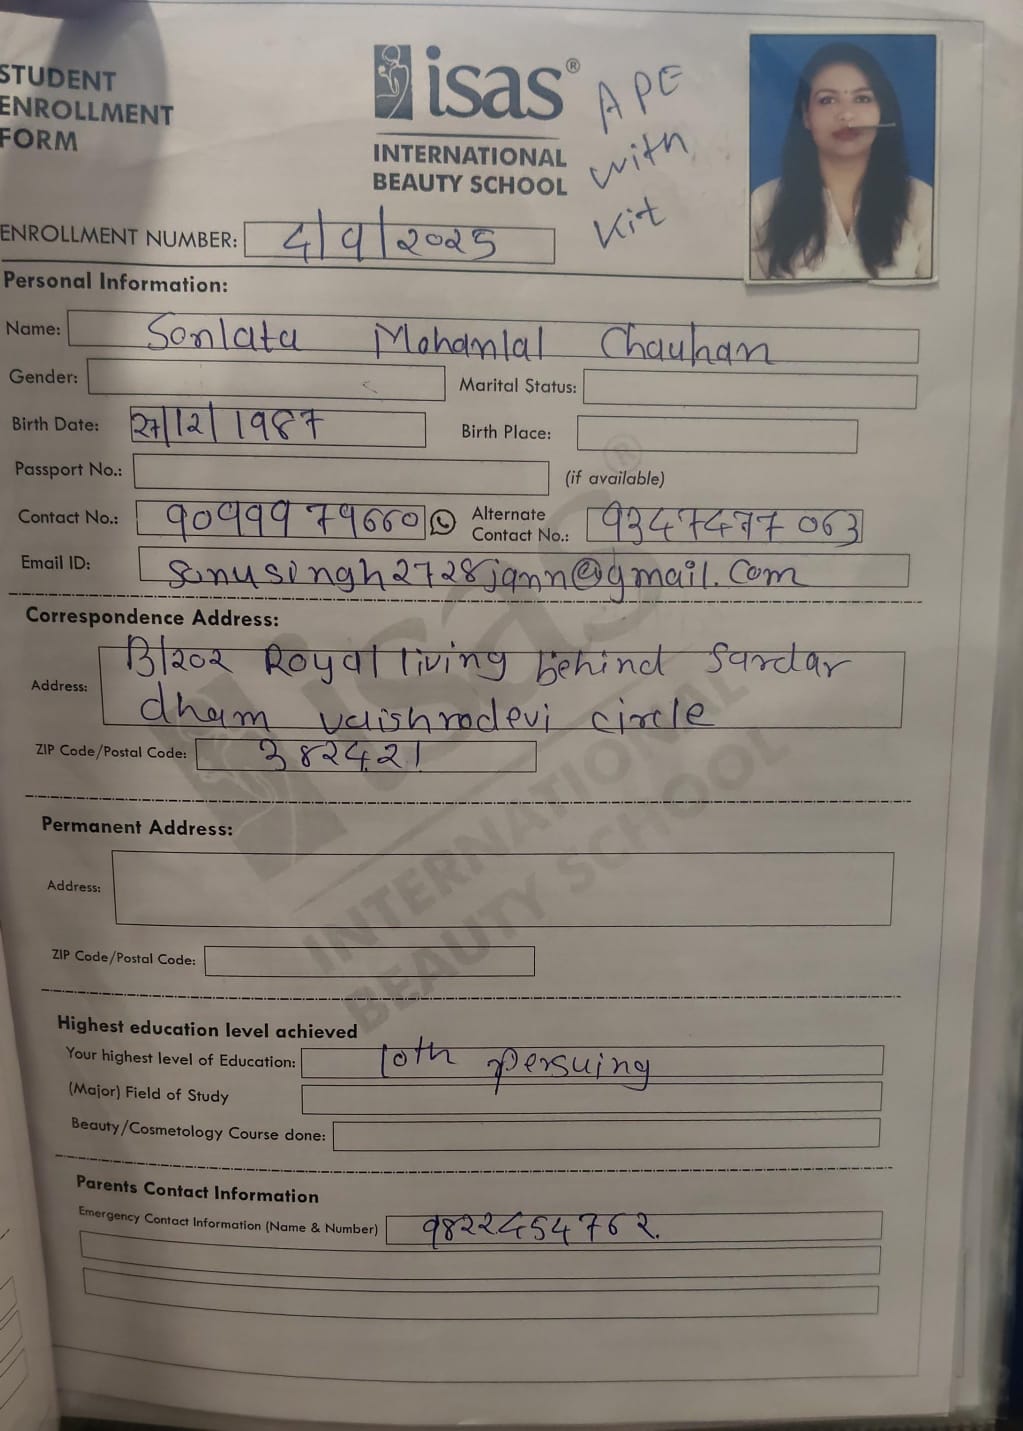 STUDENT
ENROLLMENT
FORM
isas®
INTERNATIONAL
BEAUTY SCHOOL
APE
with
Kit
ENROLLMENT NUMBER: 4/9/2025
Personal Information:
Name: Sonlata Mohanlal Chauhan
Gender: Marital Status:
Birth Date: 27/12/1987 Birth Place:
Passport No.: (if available)
Contact No.: 9099979660 Alternate Contact No.: 9347477063
Email ID: sonusingh2728jann@gmail.com
Correspondence Address:
Address: B/202 Royal living behind Sardar
dham vaishnodevi circle
ZIP Code/Postal Code: 382421
Permanent Address:
Address:
ZIP Code/Postal Code:
Highest education level achieved
Your highest level of Education: 10th persuing
(Major) Field of Study
Beauty/Cosmetology Course done:
Parents Contact Information
Emergency Contact Information (Name & Number) 9822454762.
isas®
INTERNATIONAL
BEAUTY SCHOOL